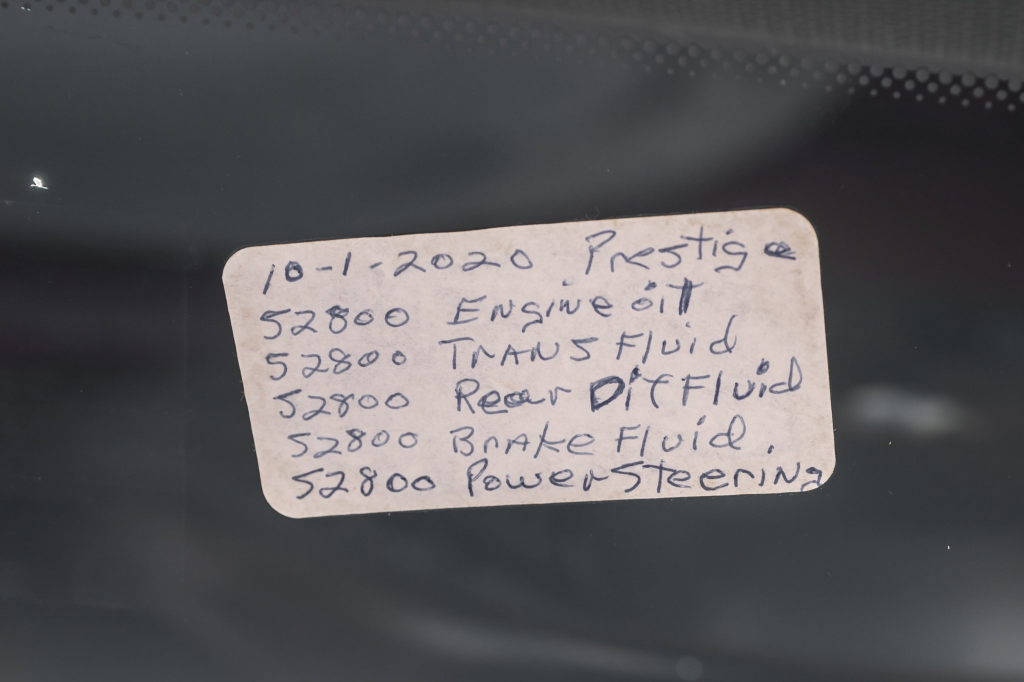 10-1-2020 Prestige
52800 Engine oil
52800 TRANS Fluid
52800 Rear Dif Fluid
52800 Brake Fluid.
52800 Power Steering